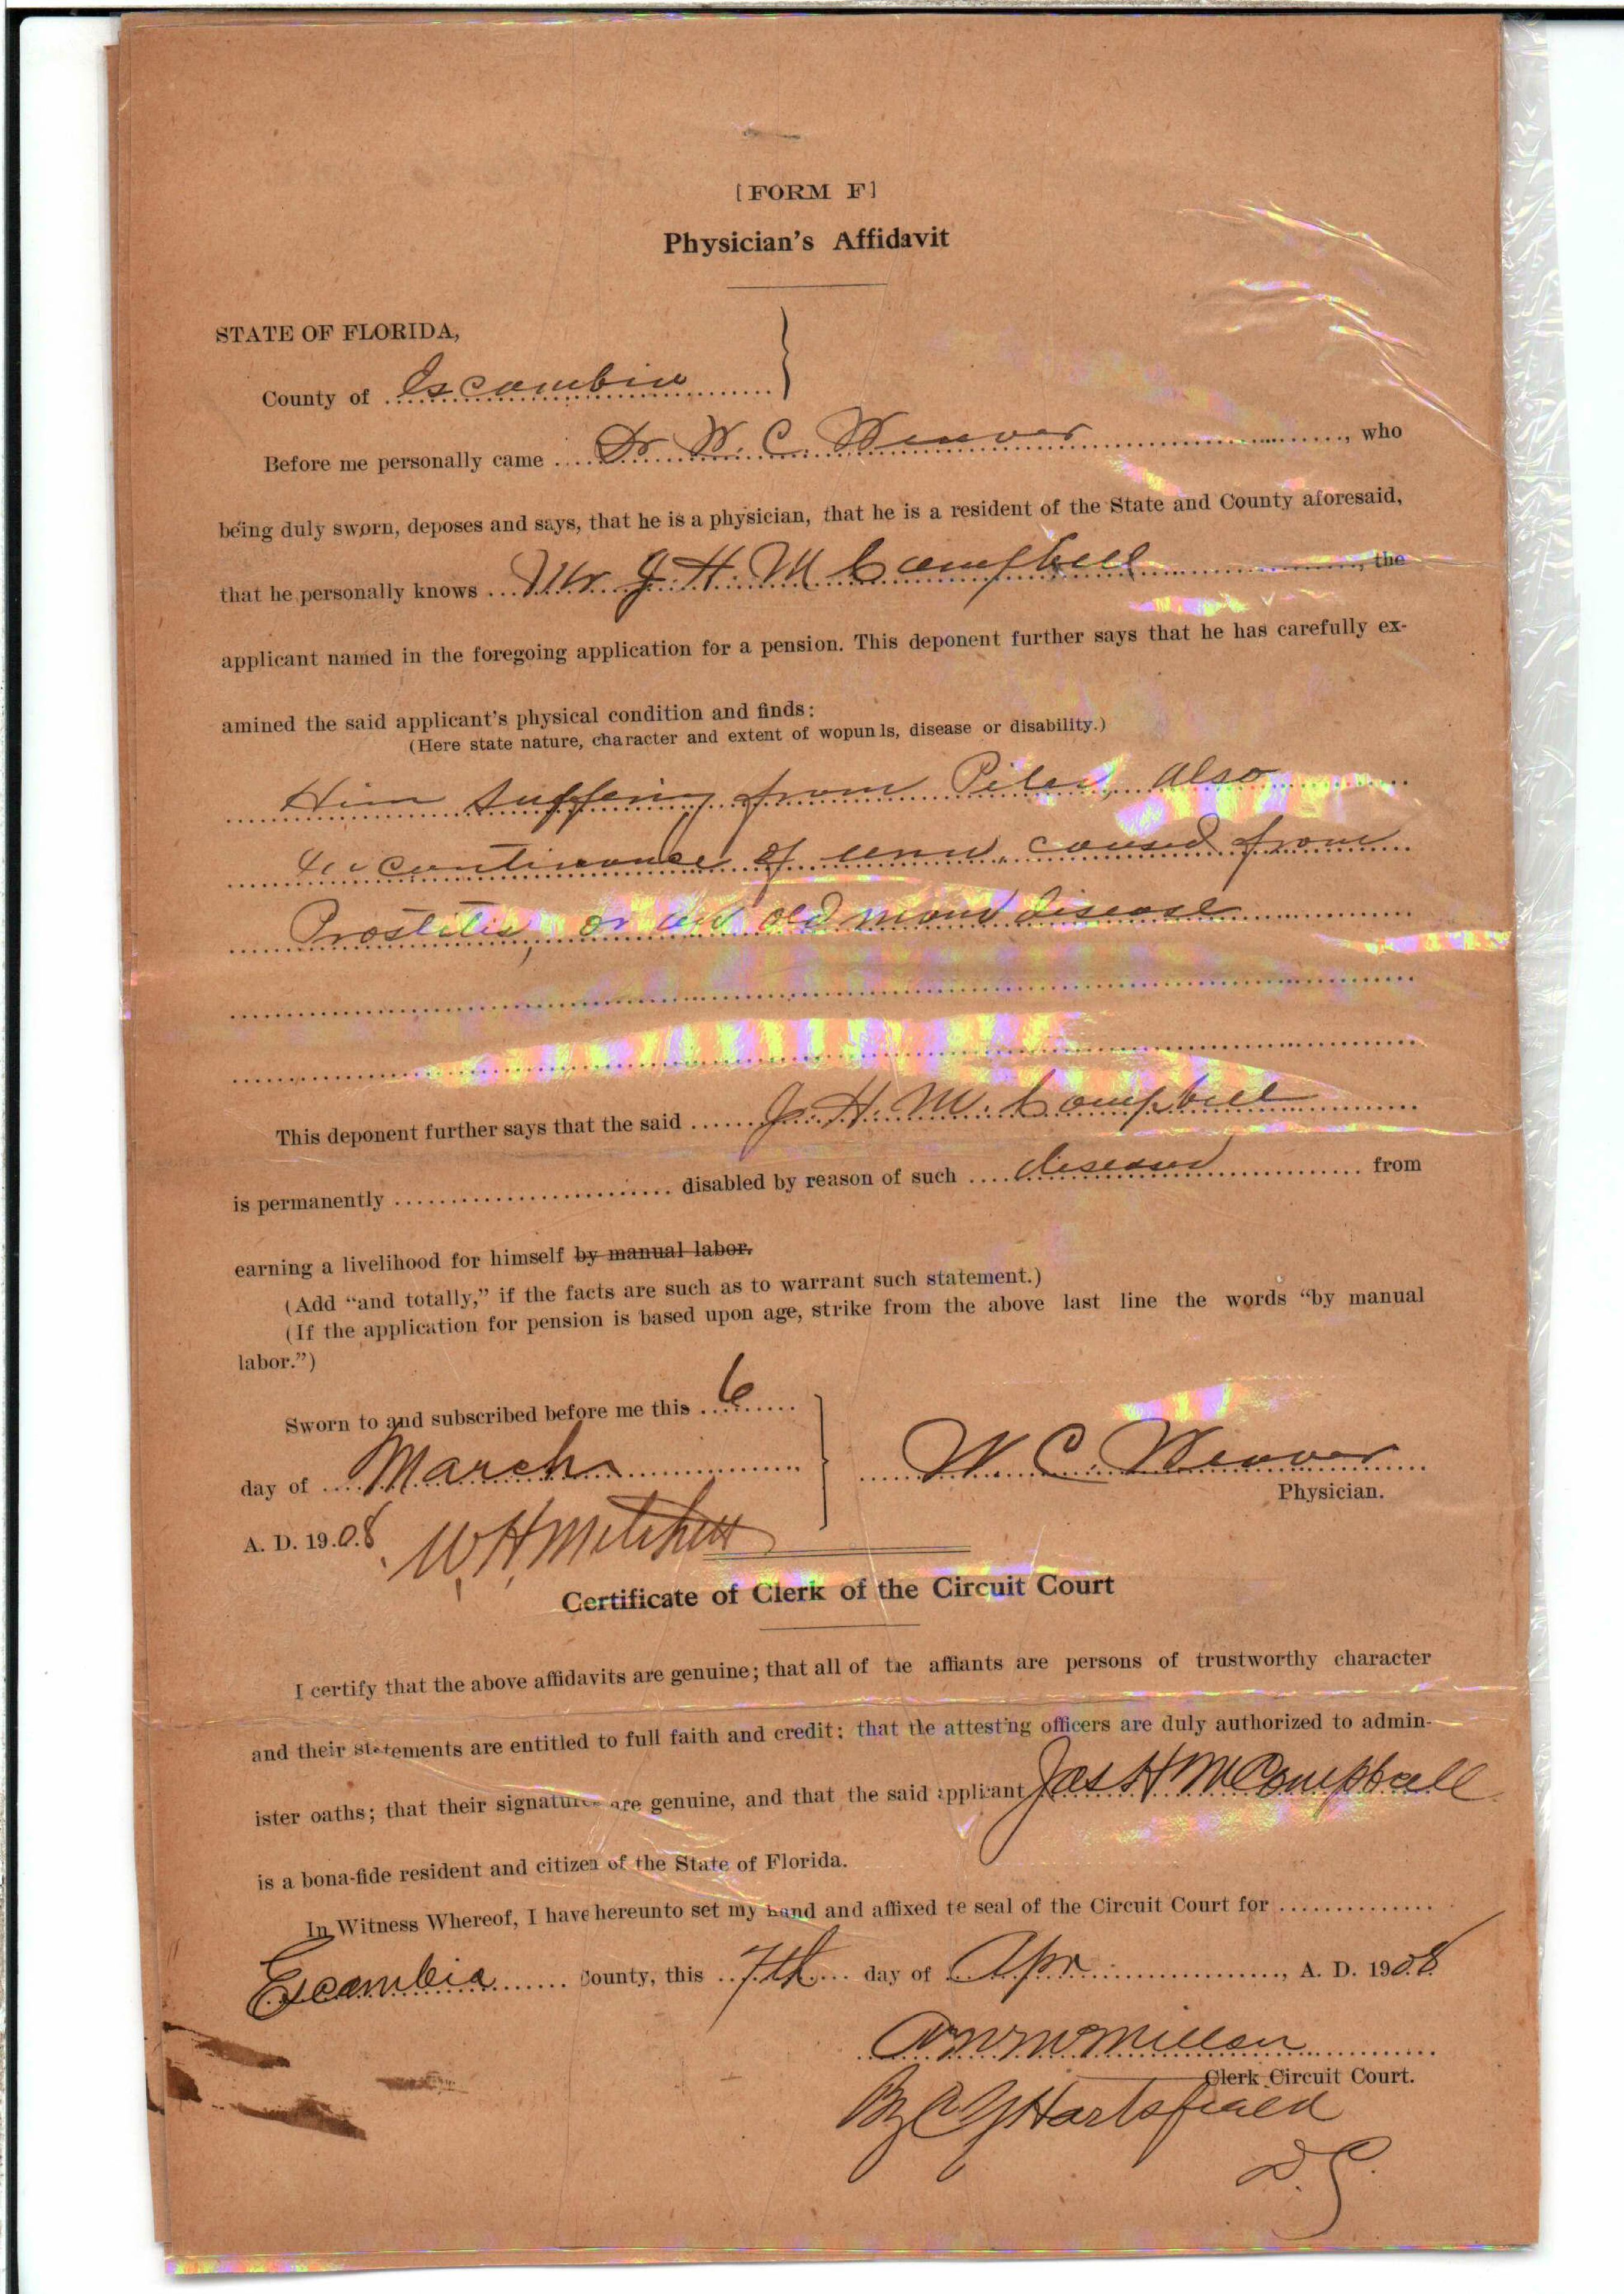 [FORM F]
Physician's Affidavit
STATE OF FLORIDA,
County of Escambia
Before me personally came Dr W. C. Weaver, who
being duly sworn, deposes and says, that he is a physician, that he is a resident of the State and County aforesaid,
that he personally knows Mr J. H. McCampbell, the
applicant named in the foregoing application for a pension. This deponent further says that he has carefully ex-
amined the said applicant's physical condition and finds:
(Here state nature, character and extent of wopunls, disease or disability.)
Him suffering from Piles, also
of caused from
or old mans disease
This deponent further says that the said J. H. McCampbell
is permanently disabled by reason of such from
earning a livelihood for himself by manual labor.
(Add "and totally," if the facts are such as to warrant such statement.)
(If the application for pension is based upon age, strike from the above last line the words "by manual
labor.")
Sworn to and subscribed before me this 6
day of March
W. C. Weaver
Physician.
A. D. 1908
W H Mitchell
Certificate of Clerk of the Circuit Court
I certify that the above affidavits are genuine; that all of the affiants are persons of trustworthy character
and their statements are entitled to full faith and credit; that the attesting officers are duly authorized to admin-
ister oaths; that their signatures are genuine, and that the said applicant Jas H McCampbell
is a bona-fide resident and citizen of the State of Florida.
In Witness Whereof, I have hereunto set my hand and affixed te seal of the Circuit Court for
Escambia County, this 7th day of Apr, A. D. 1908
McMillan
Clerk Circuit Court.
By Hartsfield
D. C.